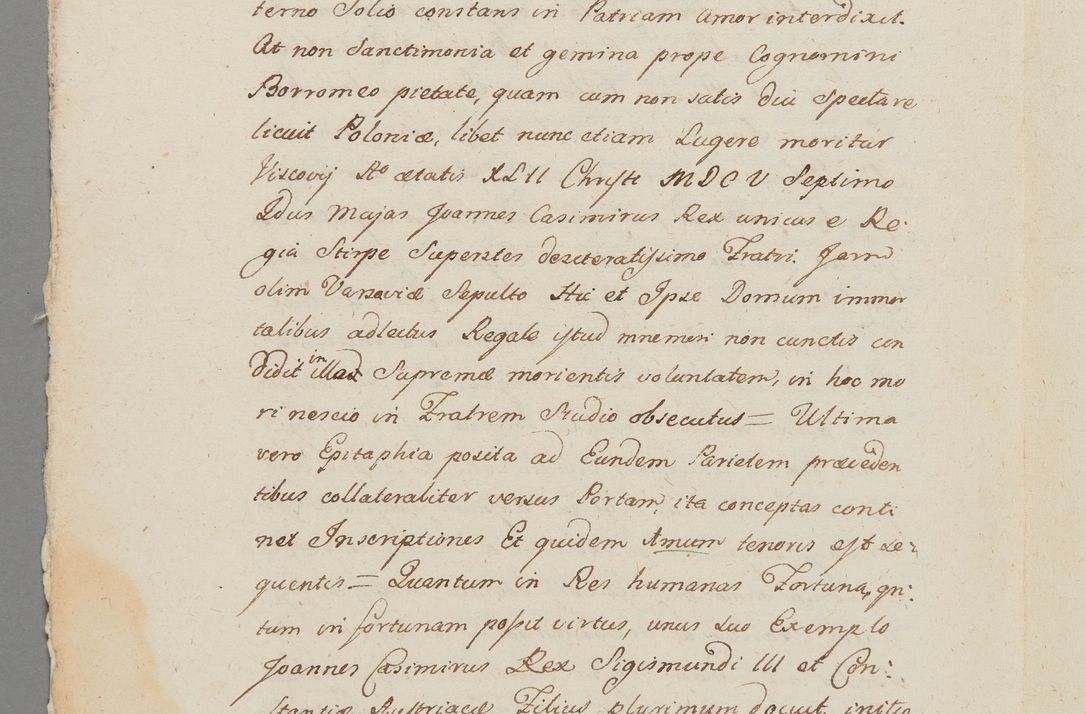 terno Solio constans in Patriam Amor interdixit.
At non Sanctimonia et gemina prope Cognomini
Borromeo pietate, quam cum non satis diu Spectare
licuit Poloniæ, libet nunc etiam Lugere moritur
Viscovij Ao ætatis XLII Christi MDCV Septimo
Idus Majas Joannes Casimirus Rex unicus e Re:
gia Stirpe Superstes desideratissimo Fratri. Jam
olim Varsaviæ Sepulto Hic et Ipse Domum immor
talibus adlectus Regale istud mnemesi non cunctis con
didit in illas Supremæ morientis voluntatem, in hoc mo
ri nescio in Fratrem Studio obsecutus = Ultima
vero Epitaphia posita ad Eundem Parietem præceden
tibus collateraliter versus Portam, ita conceptas conti
net Inscriptiones Et quidem 1mum tenoris est se:
quentis = Quantum in Res humanas Fortuna, qn:
tum in fortunam possit virtus, unus suo Exemplo
Joannes Casimirus Rex Sigismundi III et Con:
stantiæ Austriacæ Filius plurimum docuit, initio